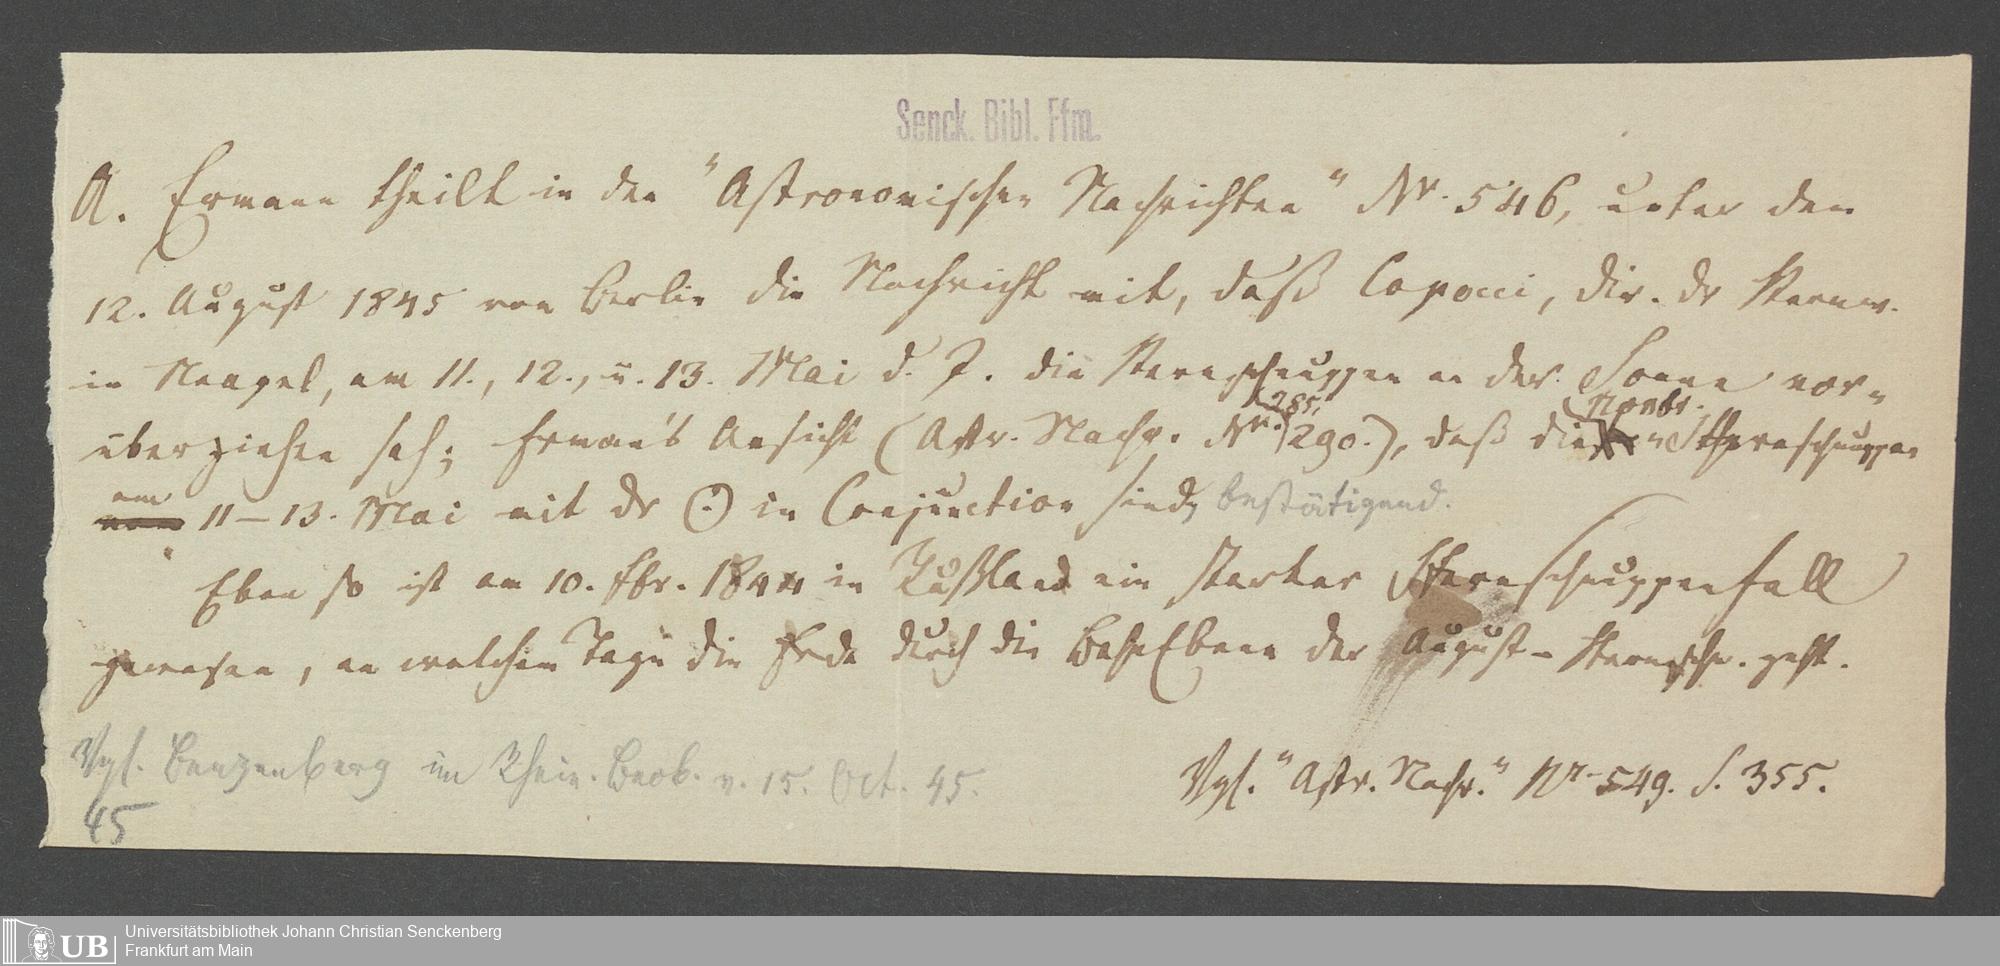 Senck. Bibl. Ffm.
A. Ermann theilt in den "Astronomischen Nachrichten" Nr. 546, unter dem
12. August 1845 von Berlin die Nachricht mit, daß Capocci, Dir. dr Sternw.
in Neapel, am 11., 12., u. 13. Mai d. J. die Sternschnuppen an der Sonne vor-
285. Novbr.
überziehen sah; Erman's Ansicht (Astr. Nachr. Nr. 290.), daß die Sternschnuppen
am
11–13. Mai mit dr ☉ in Conjunction sind, bestätigend.
Eben so ist am 10. Fbr. 1844 in Rußland ein starker Sternschnuppenfall
gewesen, an welchem Tage die Erde durch die BahnEbene der August-Sternschn. geht.
Vgl. Benzenberg im Rhein. Beob. v. 15. Oct. 45.
Vgl. "Astr. Nachr." Nr. 549. S. 355.
45
UB
Universitätsbibliothek Johann Christian Senckenberg
Frankfurt am Main